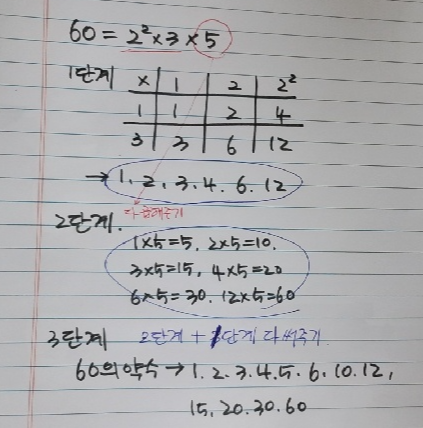 60 = 2²×3×5
1단계
× 1 2 2²
1 1 2 4
3 3 6 12
→ 1, 2, 3, 4, 6, 12
다 곱해주기
2단계.
1×5=5, 2×5=10,
3×5=15, 4×5=20
6×5=30, 12×5=60
3단계 2단계 + 1단계 다 써주기
60의 약수 → 1, 2, 3, 4, 5, 6, 10, 12,
15, 20, 30, 60